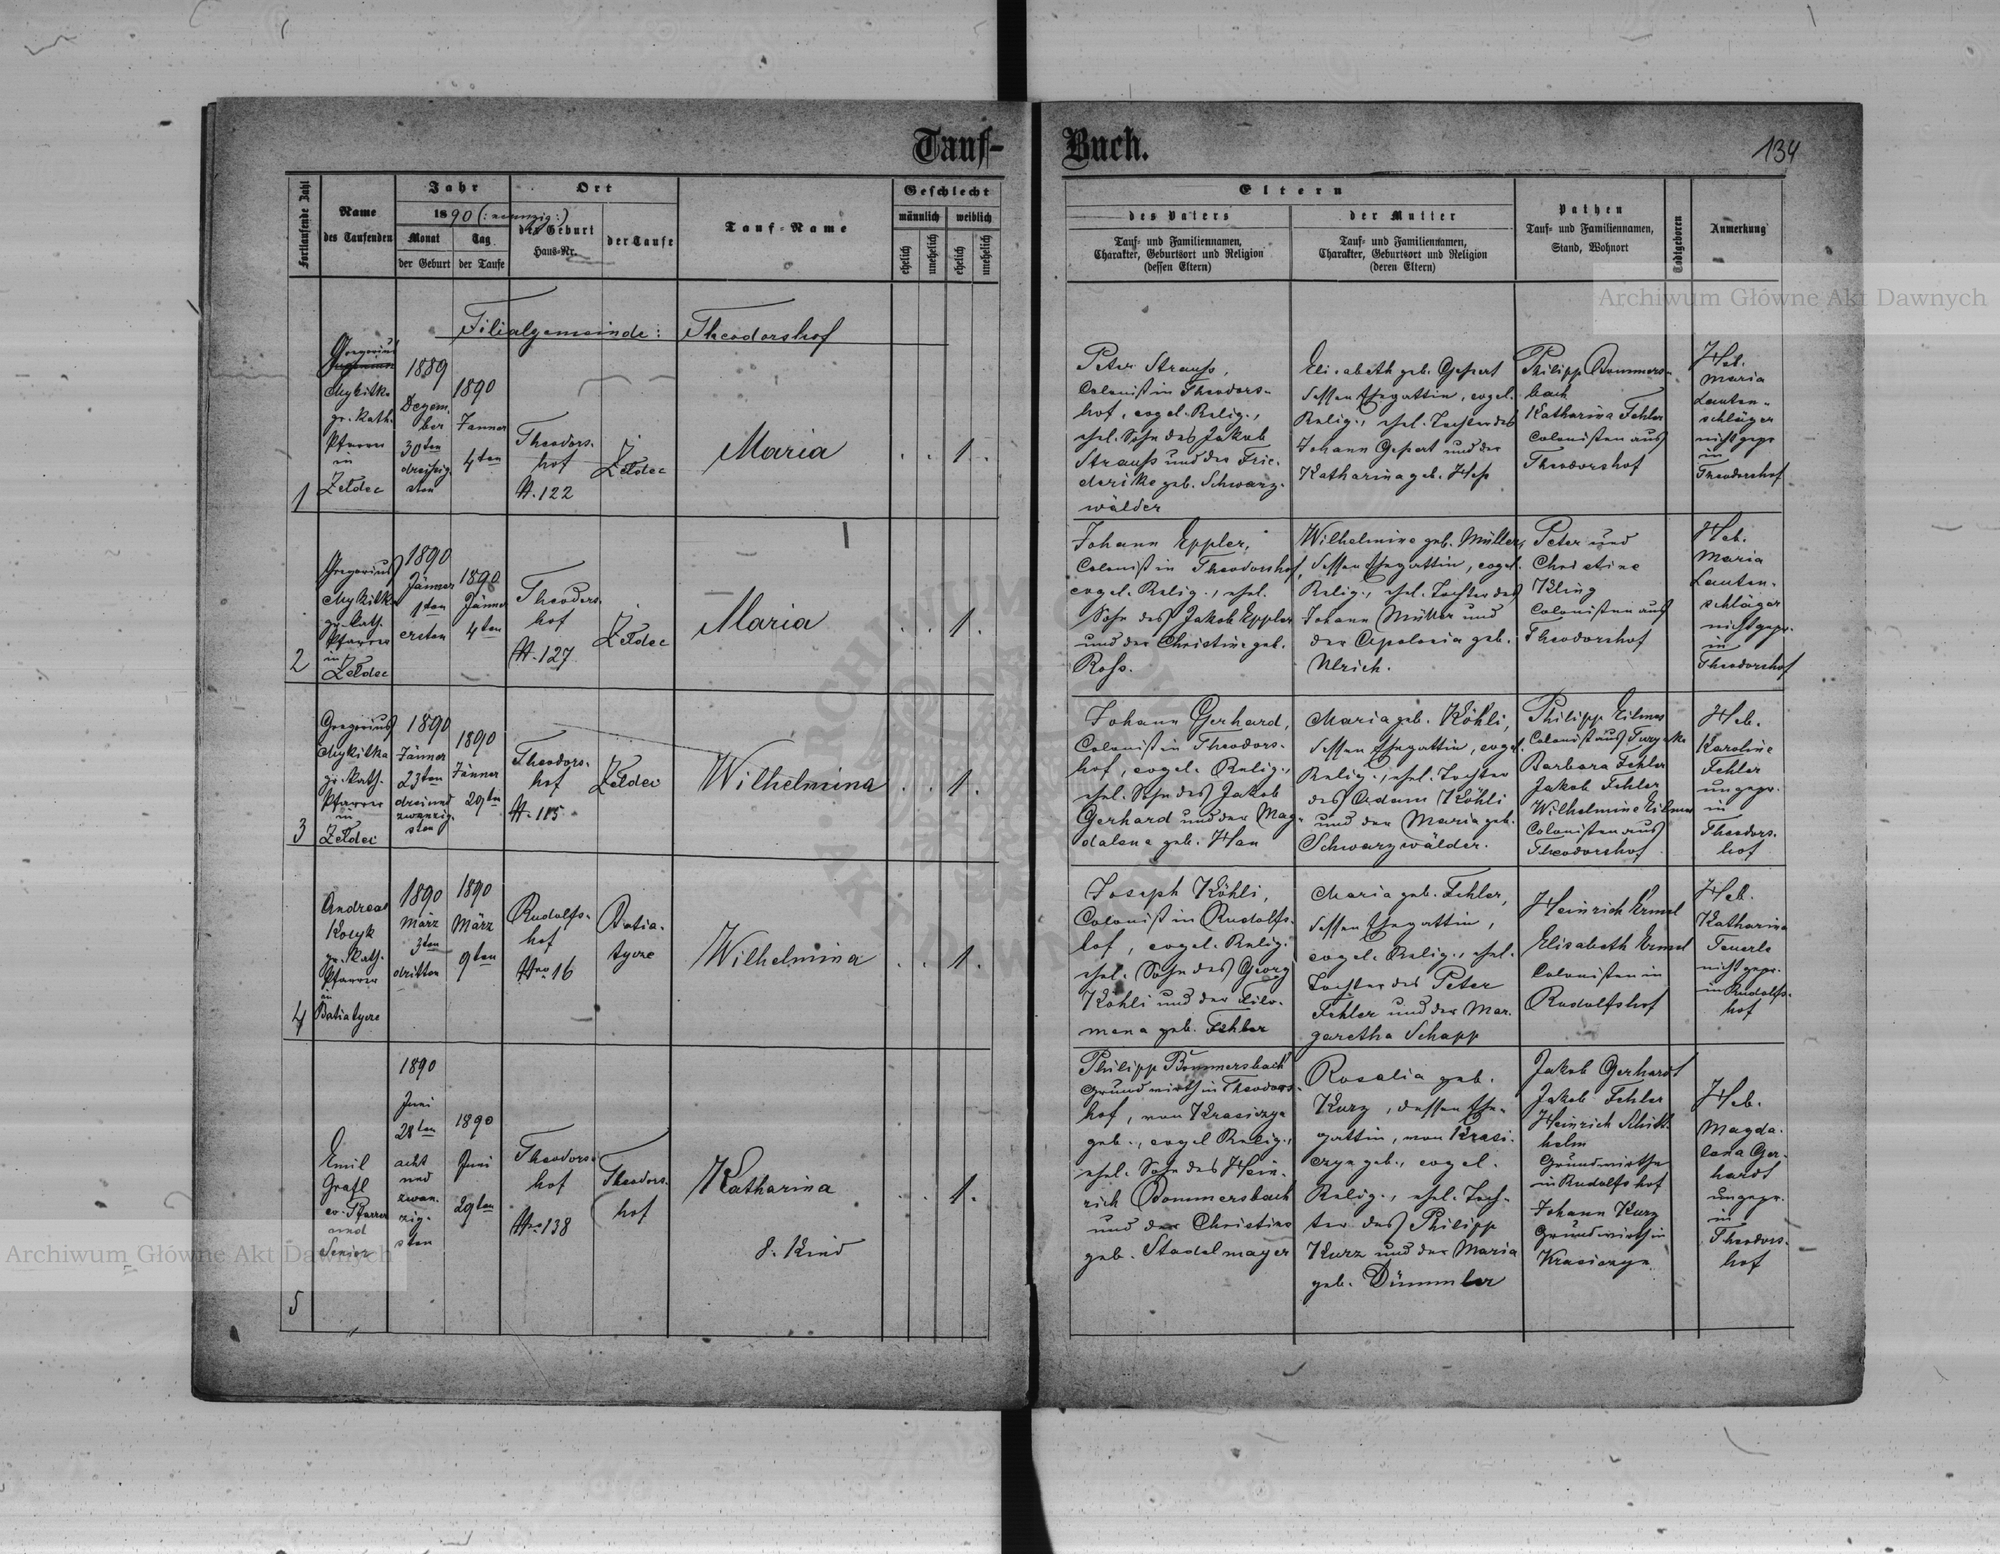 Tauf-
Buch.
134
Fortlaufende Zahl
Name
des Taufenden
Jahr
1890 (:neunzig:)
Monat
der Geburt
Tag
der Taufe
Ort
der Geburt
Haus-Nr.
der Taufe
Tauf-Name
Geschlecht
männlich
weiblich
ehelich
unehelich
ehelich
unehelich
Eltern
des Vaters
Tauf- und Familiennamen,
Charakter, Geburtsort und Religion
(dessen Eltern)
der Mutter
Tauf- und Familiennamen,
Charakter, Geburtsort und Religion
(deren Eltern)
Pathen
Tauf- und Familiennamen,
Stand, Wohnort
Todtgeboren
Anmerkung
Filialgemeinde: Theodorshof
1
Gregorius
Mykitka
gr. kath.
Pfarrer
in
Żełdec
1889
Dezem-
ber
30ten
dreißig-
sten
1890
Jänner
4ten
Theodors-
hof
N. 122
Żełdec
Maria
1.
Peter Strauss,
Colonist in Theodors-
hof, evgel. Relig.,
ehel. Sohn des Jakob
Strauss und der Frie-
derike geb. Schwarz-
wälder
Elisabeth geb. Gepert
dessen Ehegattin, evgel.
Relig., ehel. Tochter des
Johann Gepert und der
Katharina geb. Hess
Philipp Bommers-
bach
Katharina Fehler
Colonisten aus
Theodorshof
Heb.
Maria
Lauten-
schläger
nicht gepr.
in
Theodorshof
2
Gregorius
Mykitka
gr. kath.
Pfarrer
in
Żełdec
1890
Jänner
1ten
ersten
1890
Jänner
4ten
Theodors-
hof
N. 127
Żełdec
Maria
1.
Johann Eppler,
Colonist in Theodorshof,
evgel. Relig., ehel.
Sohn des Jakob Eppler
und der Christine geb.
Ross.
Wilhelmine geb. Müller,
dessen Ehegattin, evgel.
Relig., ehel. Tochter des
Johann Müller und
der Apolonia geb.
Ulrich.
Peter und
Christine
Kling
Colonisten aus
Theodorshof
Heb.
Maria
Lauten-
schläger
nicht gepr.
in
Theodorshof
3
Gregorius
Mykitka
gr. kath.
Pfarrer
in
Żełdec
1890
Jänner
23ten
dreiund
zwanzig-
sten
1890
Jänner
29ten
Theodors-
hof
N. 115
Żełdec
Wilhelmina
1.
Johann Gerhard,
Colonist in Theodors-
hof, evgel. Relig.,
ehel. Sohn des Jakob
Gerhard und der Mag-
dalena geb. Han
Maria geb. Köhli,
dessen Ehegattin, evgel.
Relig., ehel. Tochter
des Adam Köhli
und der Maria geb.
Schwarzwälder.
Philipp Eilmes
Colonist aus
Barbara Fehler
Jakob Fehler
Wilhelmine Eilmes
Colonisten aus
Theodorshof
Heb.
Karoline
Fehler
ungepr.
in
Theodors-
hof
4
Andreas
gr. kath.
Pfarrer
in
Batiatycze
1890
März
3ten
dritten
1890
März
9ten
Rudolfs-
hof
Nro 16
Batia-
tycze
Wilhelmina
1.
Joseph Köhli,
Colonist in Rudolfs-
hof, evgel. Relig.
ehel. Sohn des Georg
Köhli und der Filo-
mena geb. Fehler
Maria geb. Fehler,
dessen Ehegattin,
evgel. Relig., ehel.
Tochter des Peter
Fehler und der Mar-
garetha Schapp
Heinrich Ermel
Elisabeth Ermel
Colonisten in
Rudolfshof
Heb.
Katharina
Feuerle
nicht gepr.
in Rudolfs-
hof
5
Emil
Grafl
ev. Pfarrer
und
Senior
1890
Juni
28ten
acht
und
zwan-
zig-
sten
1890
Juni
29ten
Theodors-
hof
Nro 138
Theodors-
hof
Katharina
8. Kind
1.
Philipp Bommersbach
Grundwirth in Theodors-
hof, von Krasiczyn
geb., evgel Relig.,
ehel. Sohn des Hein-
rich Bommersbach
und der Christine
geb. Stadelmayer
Rosalia geb.
Kurz, dessen Ehe-
gattin, von Krasi-
czyn geb., evgel.
Relig., ehel. Toch-
ter des Philipp
Kurz und der Maria
geb. Dümmler
Jakob Gerhardt
Jakob Fehler
Heinrich
Grundwirthe
in Rudolfshof
Johann Kurz
Grundwirth in
Krasiczyn
Heb.
Magda-
lena Ger-
hardt
ungepr.
in
Theodors-
hof
Archiwum Główne Akt Dawnych
Archiwum Główne Akt Dawnych